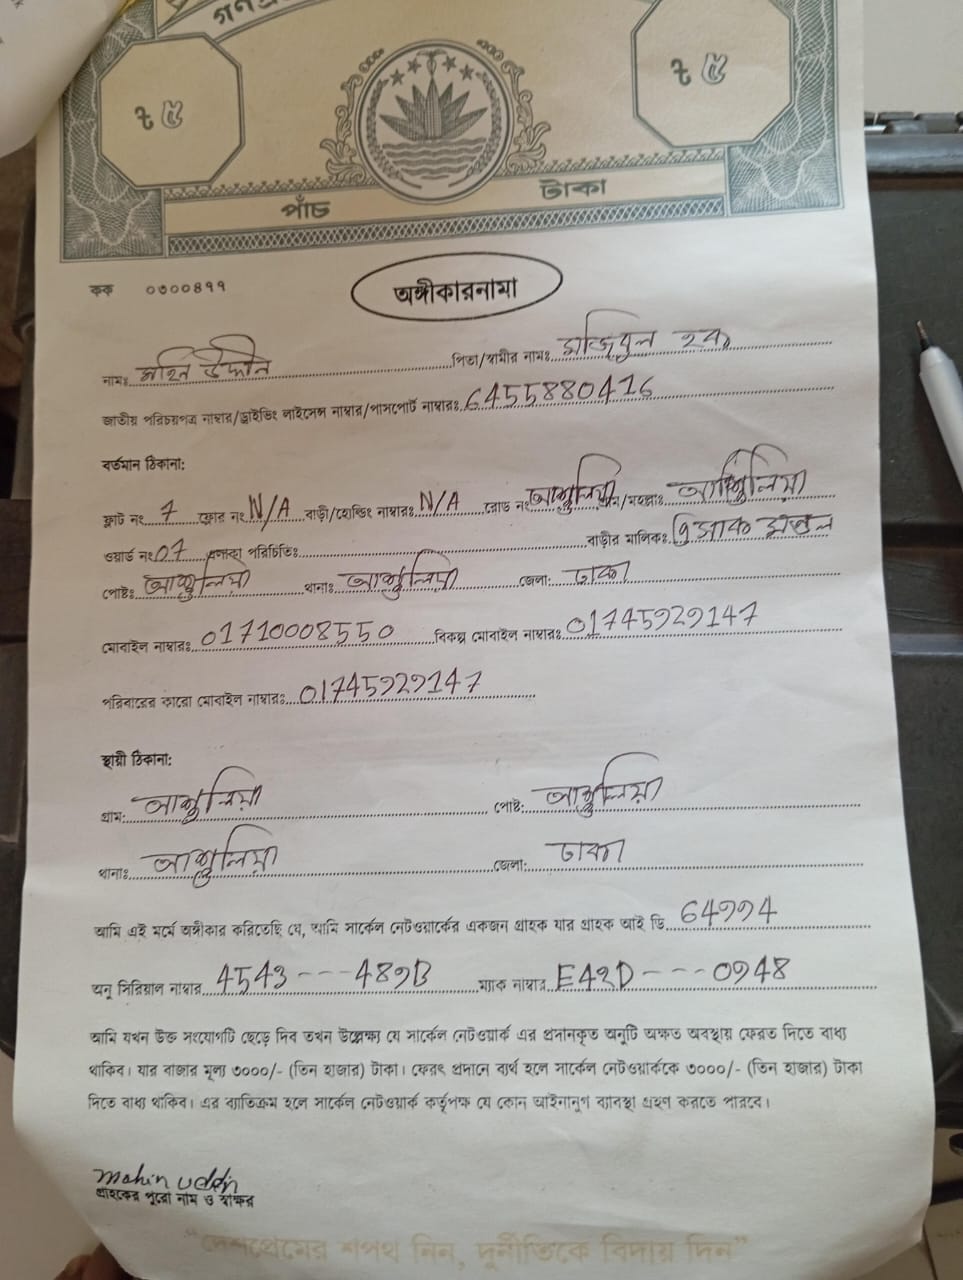 ৳ ৫
৳ ৫
পাঁচ টাকা
কক ০৩০০৪৭৭
অঙ্গীকারনামা
নামঃ মহিন উদ্দীন পিতা/স্বামীর নামঃ মজিবুল হক
জাতীয় পরিচয়পত্র নাম্বার/ড্রাইভিং লাইসেন্স নাম্বার/পাসপোর্ট নাম্বারঃ 6455880416
বর্তমান ঠিকানা:
ফ্লাট নং 7 ফ্লোর নং N/A বাড়ী/হোল্ডিং নাম্বারঃ N/A রোড নং আশুলিয়া গ্রাম/মহল্লাঃ আশুলিয়া
ওয়ার্ড নং 07 এলাকা পরিচিতিঃ বাড়ীর মালিকঃ
পোষ্টঃ আশুলিয়া থানাঃ আশুলিয়া জেলা: ঢাকা
মোবাইল নাম্বারঃ 01710008550 বিকল্প মোবাইল নাম্বারঃ 01745929147
পরিবারের কারো মোবাইল নাম্বারঃ 01745929147
স্থায়ী ঠিকানা:
গ্রাম: আশুলিয়া পোষ্ট: আশুলিয়া
থানাঃ আশুলিয়া জেলা: ঢাকা
আমি এই মর্মে অঙ্গীকার করিতেছি যে, আমি সার্কেল নেটওয়ার্কের একজন গ্রাহক যার গ্রাহক আই ডি 64994
অনু সিরিয়াল নাম্বার 4543---489B ম্যাক নাম্বার E42D---0948
আমি যখন উক্ত সংযোগটি ছেড়ে দিব তখন উল্লেক্ষ্য যে সার্কেল নেটওয়ার্ক এর প্রদানকৃত অনুটি অক্ষত অবস্থায় ফেরত দিতে বাধ্য
থাকিব। যার বাজার মূল্য ৩০০০/- (তিন হাজার) টাকা। ফেরৎ প্রদানে ব্যর্থ হলে সার্কেল নেটওয়ার্ককে ৩০০০/- (তিন হাজার) টাকা
দিতে বাধ্য থাকিব। এর ব্যাতিক্রম হলে সার্কেল নেটওয়ার্ক কর্তৃপক্ষ যে কোন আইনানুগ ব্যবস্থা গ্রহণ করতে পারবে।
Mahin uddin
গ্রাহকের পুরো নাম ও স্বাক্ষর
"দেশপ্রেমের শপথ নিন, দুর্নীতিকে বিদায় দিন"